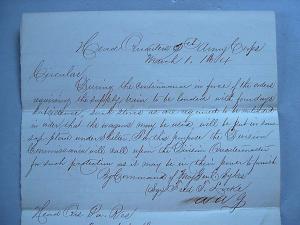 Head Quarters 5th Army Corps
March 1, 1864
Circular
During the continuance in force of the orders
requiring the supply train to be loaded with four days
Subsistence, such stores as are requisite to be unloaded
in order that the wagons may be used, will be put in some
safe place under shelter. For this purpose the Division
Commissaries will call upon the Division Quartermaster
for such protection as it may be in their power to furnish
By Command of Maj Gen Sykes
Sgd Fred T. Locke
A A G
Head Qrs Pa. Res